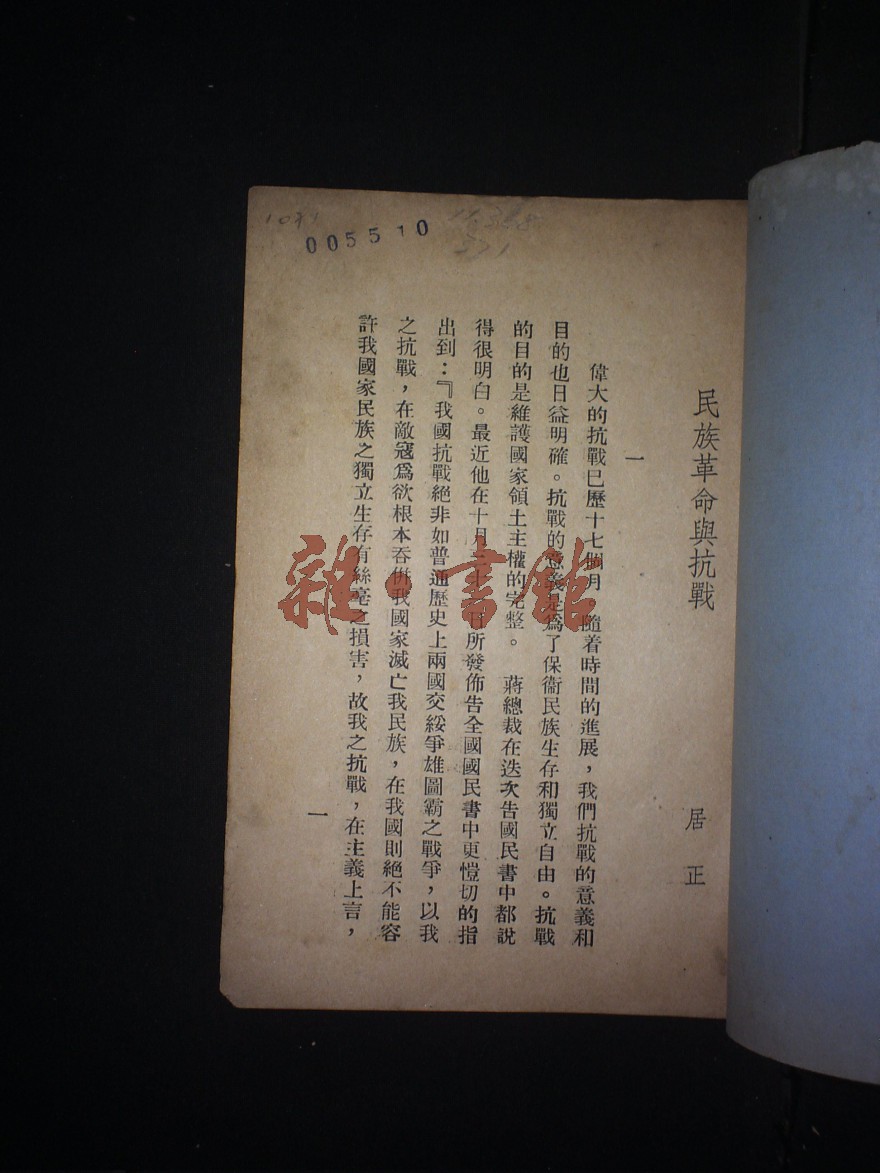 民族革命與抗戰
居正
一
偉大的抗戰已歷十七個月 隨着時間的進展，我們抗戰的意義和
目的也日益明確。抗戰的意義是爲了保衞民族生存和獨立自由。抗戰
的目的是維護國家領土主權的完整。 蔣總裁在迭次告國民書中都說
得很明白。最近他在十月三十一日所發佈告全國國民書中更愷切的指
出到：『我國抗戰絕非如普通歷史上兩國交綏爭雄圖霸之戰爭，以我
之抗戰，在敵寇爲欲根本吞併我國家滅亡我民族，在我國則絕不能容
許我國家民族之獨立生存有絲毫之損害，故我之抗戰，在主義上言，
一
005510
雜·書館